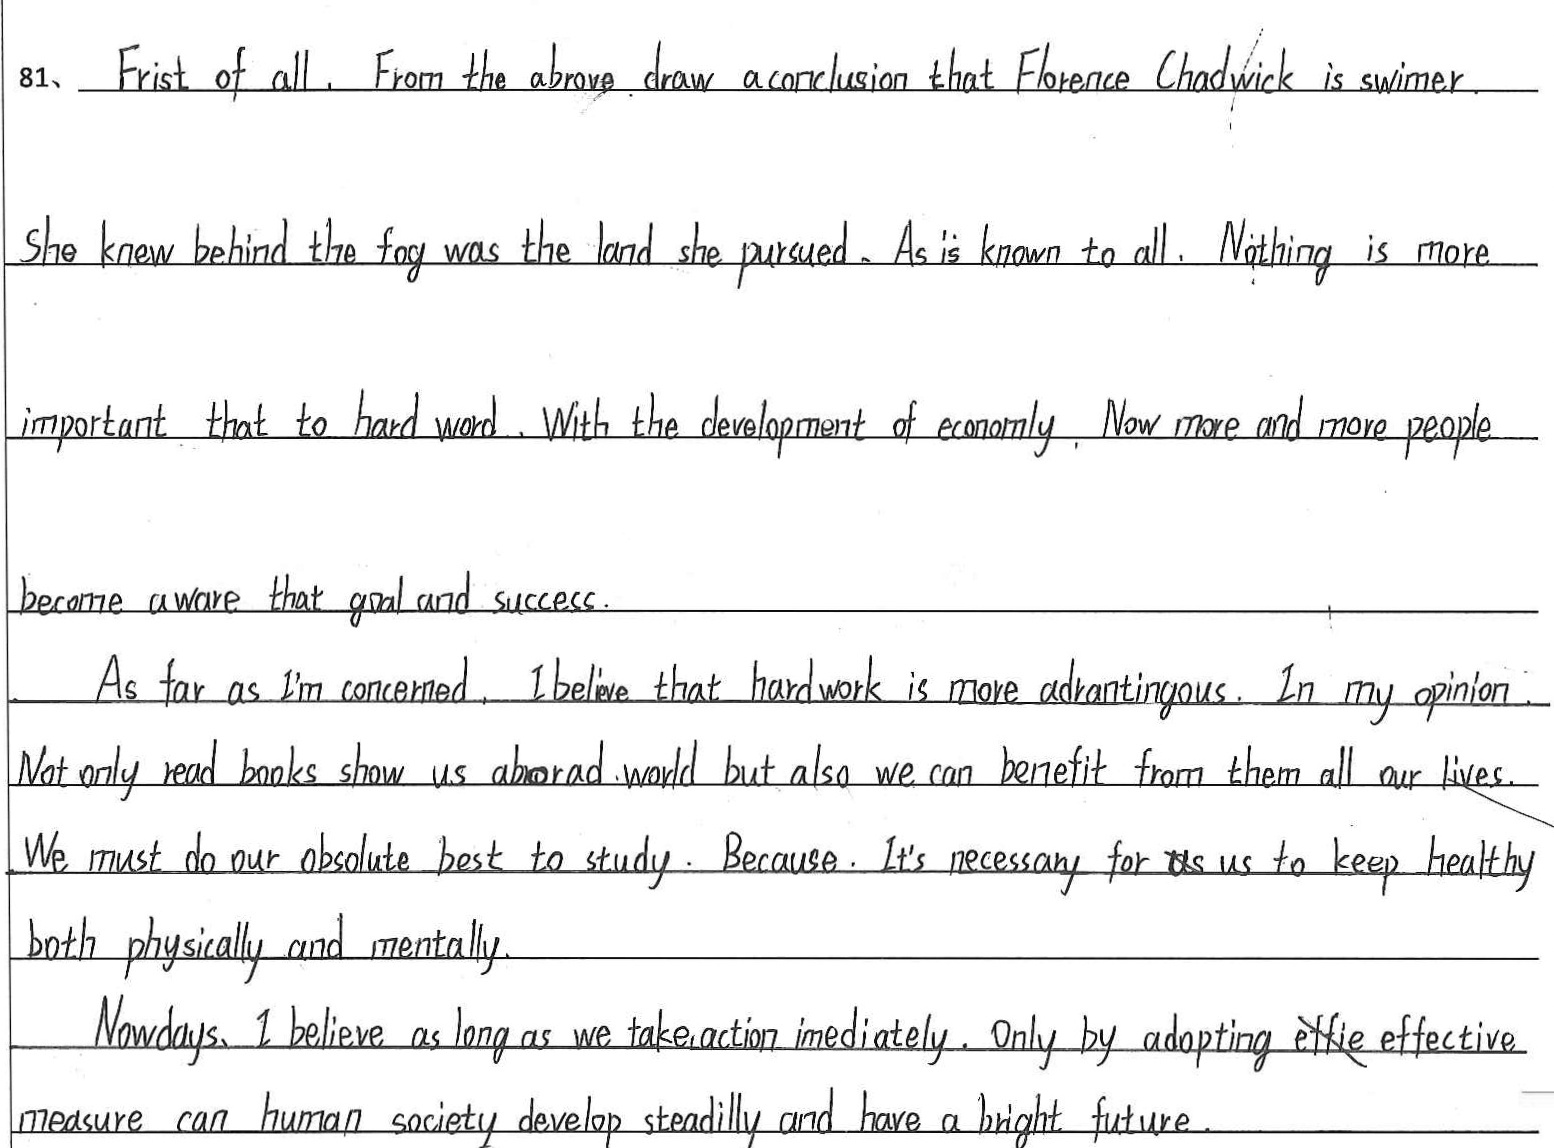 81、 Frist of all. From the abrove draw a conclusion that Florence Chadwick is swimer.
She knew behind the fog was the land she pursued. As is known to all. Nothing is more
important that to hard word. With the development of economly. Now more and more people
become aware that goal and success.
As far as I'm concerned, I believe that hard work is more adrantingous. In my opinion.
Not only read books show us abrorad world but also we can benefit from them all our lives.
We must do our absolute best to study. Because. It's necessary for us to keep healthy
both physically and mentally.
Nowdays. I believe as long as we take action imediately. Only by adopting effective
measure can human society develop steadilly and have a bright future.